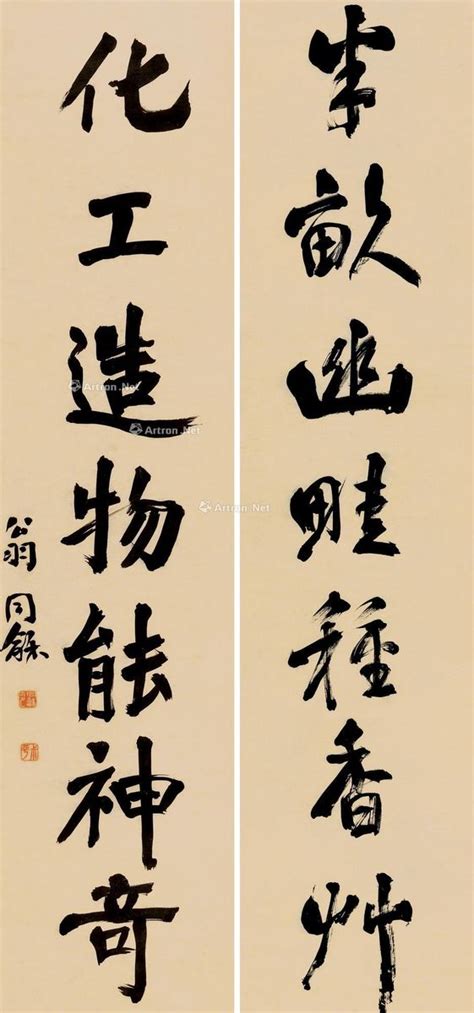 半畝幽畦種香艸
化工造物能神奇
翁同龢
Artron.Net
Artron.Net
Artron.Net